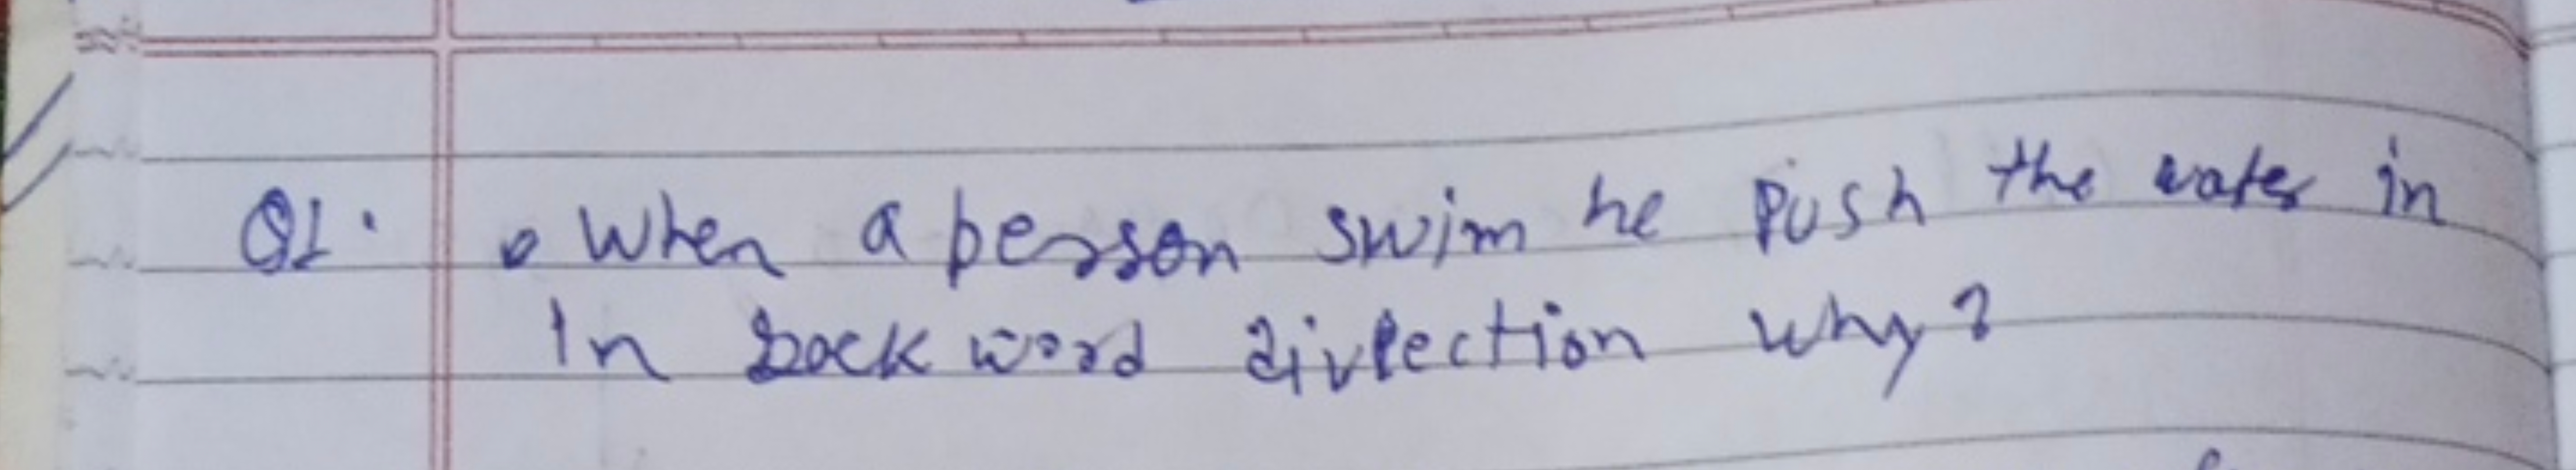 Q1. When a person swim he push the water in
In backword divlection why?